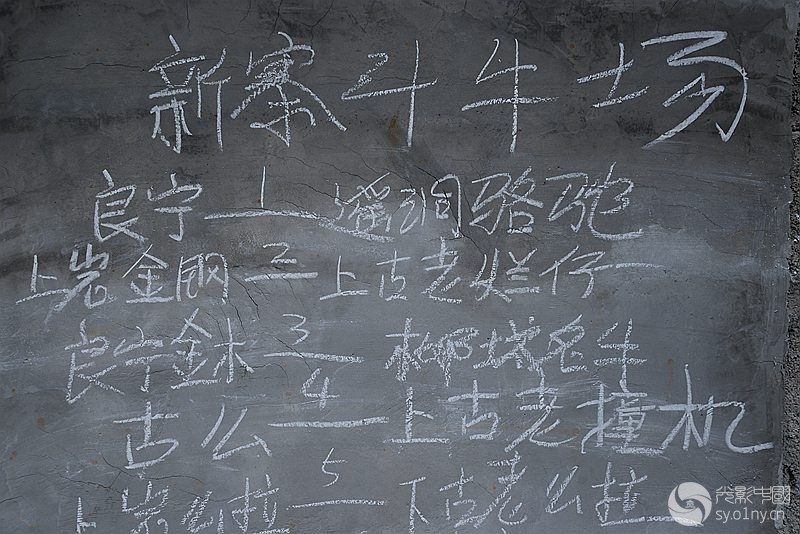 新寨斗牛场
良宁 1 洞骆驼
上岩金钢 2 上古老烂仔
良宁金木 3 柳城名牛
古么 4 上古老撞机
上岩么拉 5 下古老么拉
光影中國
sy.o1ny.cn